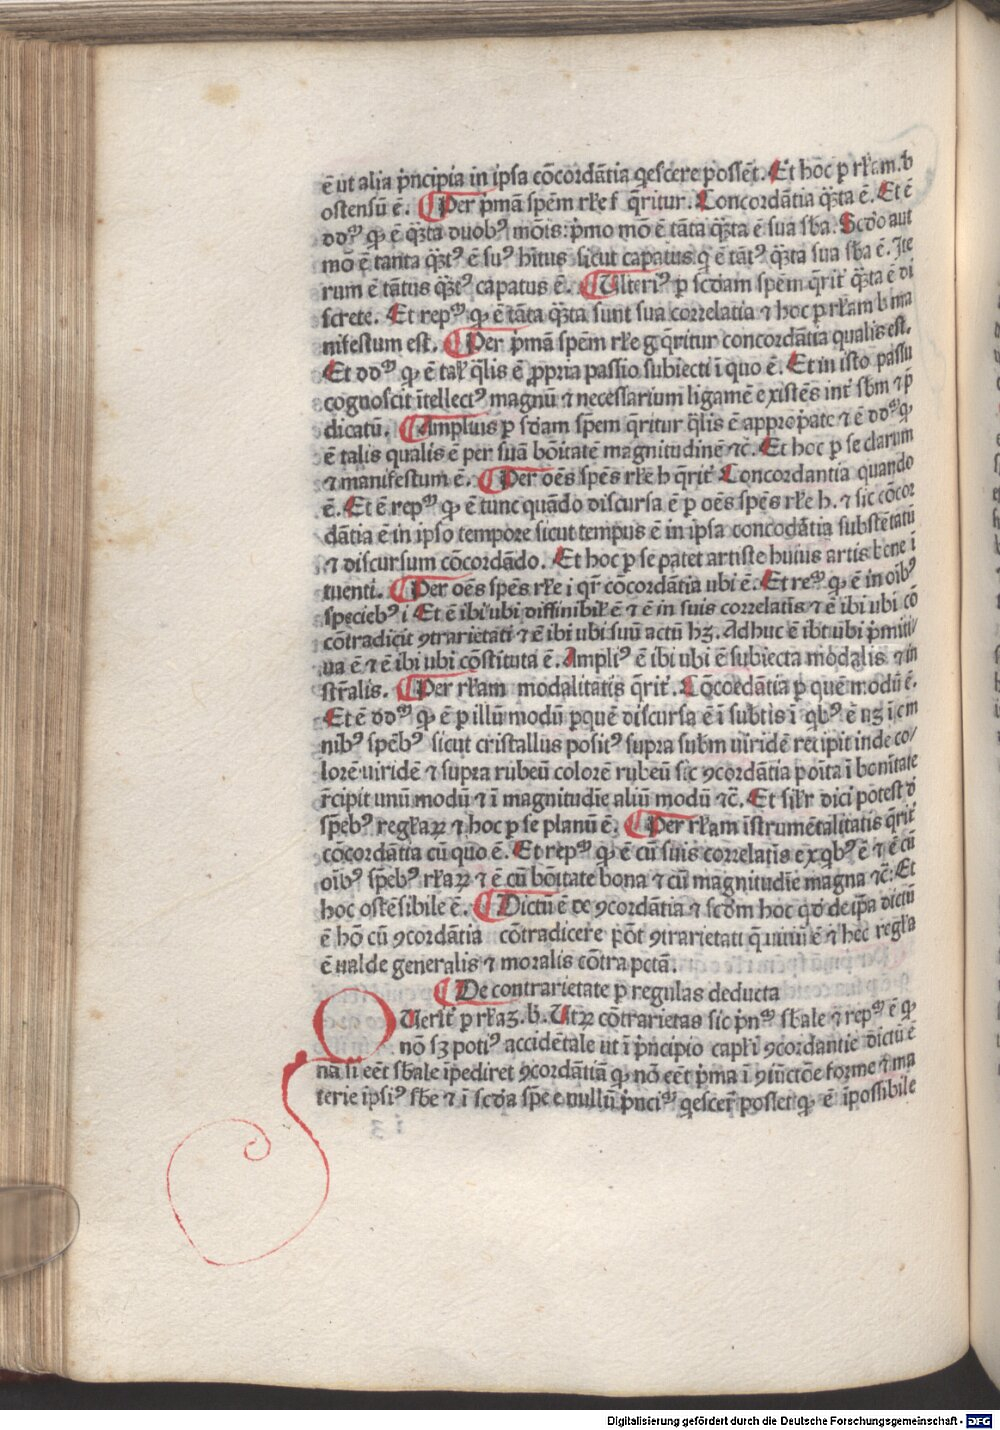 ē ut alia p̄ncipia in ipsa cōcordātia q̄escere possēt. Et hoc p rłam. b
ostensū ē. ¶ Per p̄mā spēm rłe f q̄ritur. Concordātia q̄ʒta ē. Et ē
ddᷣ qꝫ ē q̄ʒta duobꝰ mōis: p̄mo mō ē tāta q̄ʒta ē sua sb̄a. Scd̄o aut
mō ē tanta q̄ʒtꝰ ē suꝰ h̄itus sicut capatus q ē tātꝰ q̄ʒta sua sb̄a ē. Ite
rum ē tātus q̄ʒtꝰ capatus ē. ¶ Ulteriꝰ p scd̄am spēm q̄rit̄ q̄ʒta ē di
screte. Et repᷣ qꝫ ē tāta q̄ʒta sunt sua correlatia ⁊ hoc p rłam b ma
nifestum est. ¶ Per p̄mā spēm rłe g q̄ritur concordātia qualis est.
Et ddᷣ qꝫ ē tał q̄lis ē ꝓpria passio subiecti ī quo ē. Et in isto passu
cognoscit ītellectꝰ magnū ⁊ necessarium ligamē existēs int̄ sb̄m ⁊ p̄
dicatū. ¶ Ampluis p scd̄am spēm q̄ritur q̄lis ē appropātc ⁊ ē ddᷣ qꝫ
ē talis qualis ē per suā bōitatē magnitudinē ⁊c̄. Et hoc p se clarum
⁊ manifestum ē. ¶ Per oēs spēs rłe h q̄rit̄ Concordantia quando
ē. Et ē repᷣ qꝫ ē tunc quādo discursa ē p oēs spēs rłe h. ⁊ sic cōcor
dātia ē in ipso tempore sicut tempus ē in ipsa concodātia substētatū
⁊ discursum cōcordādo. Et hoc p se patet artiste huius artis bene ī
tuenti. ¶ Per oēs spēs rłe i qr̄ cōcordātia ubi ē. Et reᷣ qꝫ ē in oībꝰ
speciebꝰ i Et ē ibi ubi diffinibił ē ⁊ ē in suis correlatīs ⁊ ē ibi ubi cō
cōtradicit ꝯtrarietati ⁊ ē ibi ubi suū actū hʒ. Adhuc ē ibi ubi p̄miti/
ua ē ⁊ ē ibi ubi cōstituta ē. Ampliꝰ ē ibi ubi ē subiecta modalis ⁊ in
str̄alis. ¶ Per rłam modalitatis q̄rit̄. Cōcoedātia p quē modū ē.
Et ē ddᷣ qꝫ ē p illū modū p quē discursa ē ī subtis ī qbꝰ ē uʒ ī om
nibꝰ spēbꝰ sicut cristallus positꝰ supra subm uiridē recipit inde co/
lorē uiridē ⁊ supra rubeū colorē rubeū sic ꝯcordātia poīta ī bonitate
r̄cipit unū modū ⁊ ī magnitudīe aliū modū ⁊c̄. Et silr dici pōtest d̄
sp̄ebꝰ regłaꝝ ⁊ hoc p se planū ē. ¶ Per rłam īstrumētalitatis q̄rit̄
cōcordātia cū quo ē. Et repᷣ qꝫ ē cū suis correlatīs ex qbꝰ ē ⁊ ē cū
oībꝰ sp̄ebꝰ rłaꝝ ⁊ ē cū bōitate bona ⁊ cū magnitudīe magna ⁊c̄: Et
hoc ostēsibile ē. ¶ Dictū ē de ꝯcordātia ⁊ scd̄m hoc qd̄ de ip̄a dictū
ē hō cū ꝯcordātia cōtradicere pōt ꝯtrarietati q̄ uitiū ē ⁊ hec regła
ē ualde generalis ⁊ moralis cōtra pctā.
¶ De contrarietate p regulas deducta
Querit̄ p rłaʒ. b. Utꝝ cōtrarietas sic p̄nᷣ sb̄ale ⁊ repᷣ ē qꝫ
nō sʒ potiꝰ accidētale ut ī p̄ncipio capłi ꝯcordantie dictū ē
nā si eēt sb̄ale ip̄ediret ꝯcordātiā qꝫ nō eēt p̄ma ī ꝯiūctōe forme ⁊ ma
terie ip̄siꝰ sb̄e ⁊ ī scd̄a sp̄e e nullū p̄nciᷣ q̄escer̄ posset qꝫ ē ipossibile
Digitalisierung gefördert durch die Deutsche Forschungsgemeinschaft - DFG